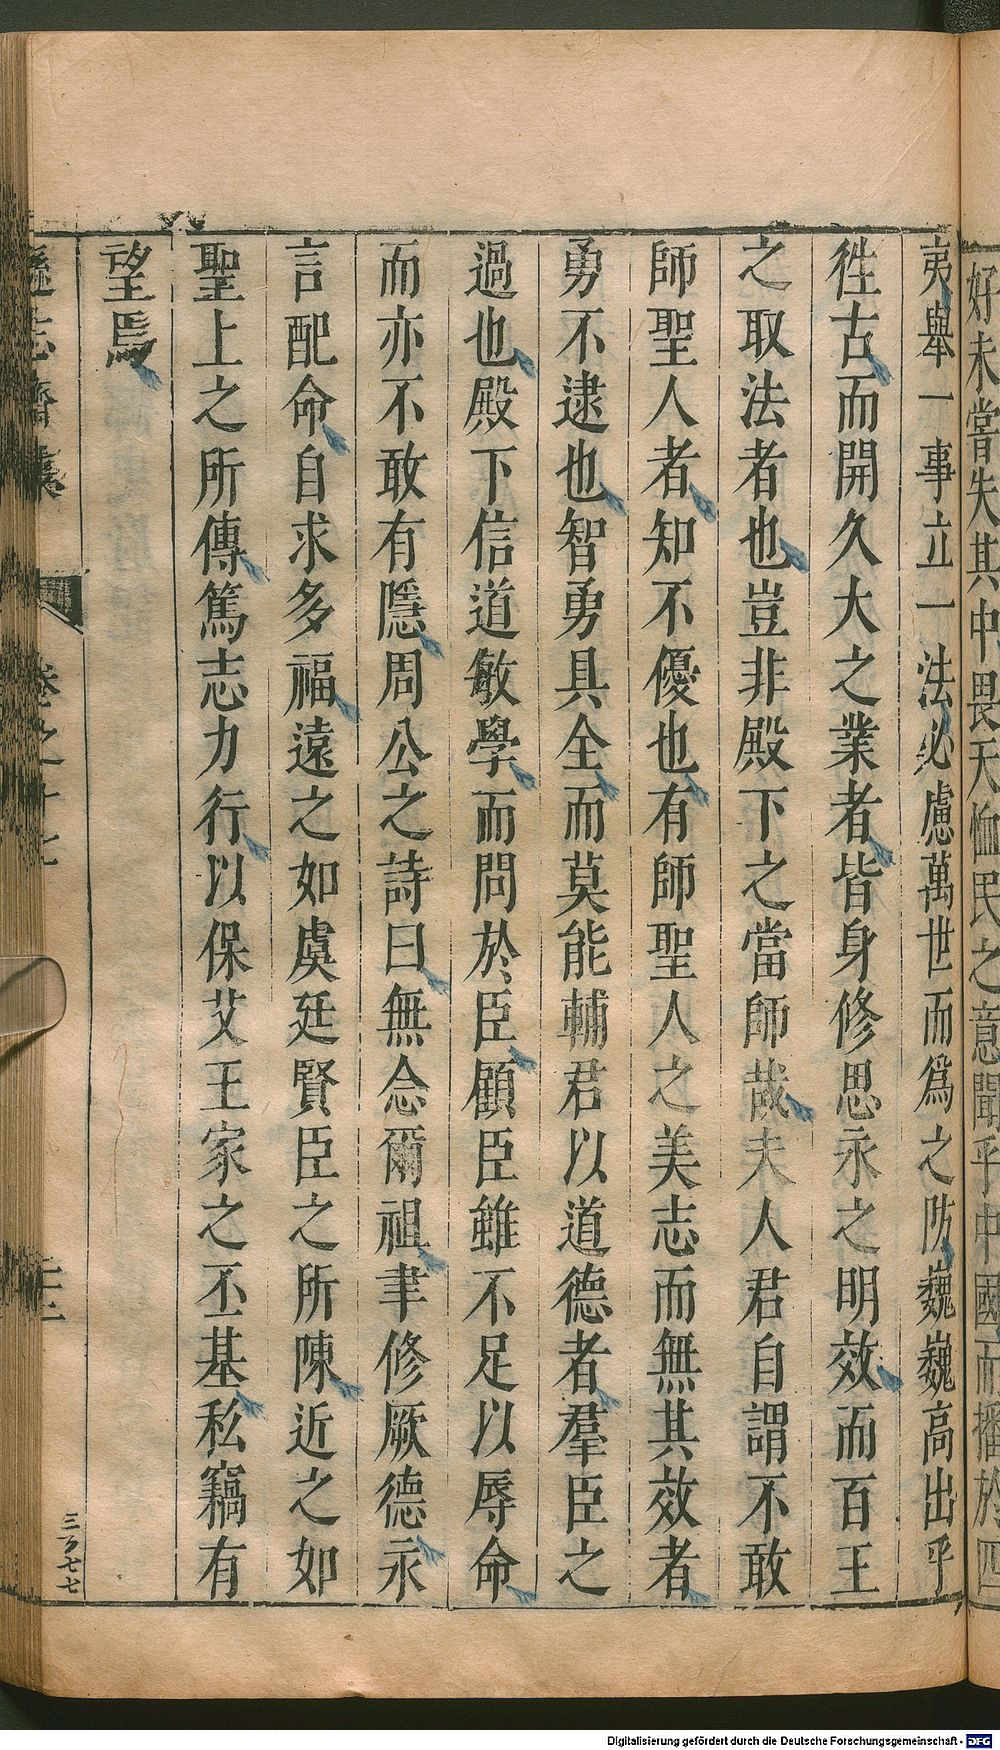 好未嘗失其中畏天恤民之意聞乎中國而播於四
夷舉一事立一法必慮萬世而爲之防巍巍高出乎
徃古而開久大之業者皆身修思永之明效而百王
之取法者也豈非殿下之當師哉夫人君自謂不敢
師聖人者知不優也有師聖人之美志而無其效者
勇不逮也智勇具全而莫能輔君以道德者羣臣之
過也殿下信道敏學而問於臣顧臣雖不足以辱命
而亦不敢有隱周公之詩曰無念爾祖聿修厥德永
言配命自求多福遠之如虞廷賢臣之所陳近之如
聖上之所傳篤志力行以保艾王家之丕基私竊有
望焉
遜志齋集 卷之十七
Digitalisierung gefördert durch die Deutsche Forschungsgemeinschaft - DFG